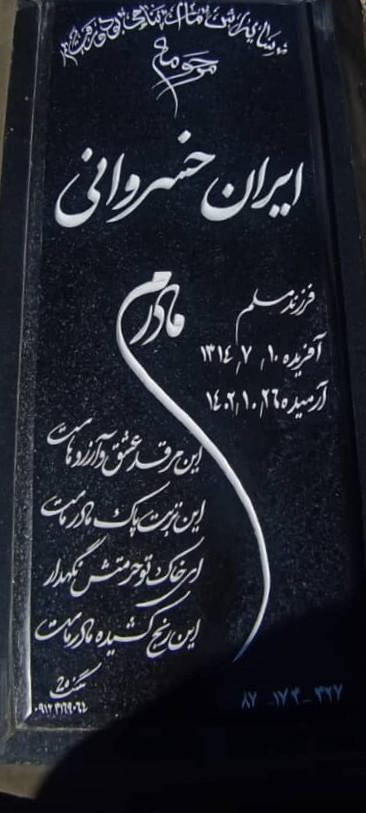 مرحومه
ایران خسروانی
مادرم
فرزند مسلم
آفریده ۱۰٫ ۷٫ ۱۳۱۴
آرمیده ۲۶٫۱۰٫۱۴۰۲
این مرقد عشق و آرزوهاست
این تربت پاک مادر ماست
ای خاک تو حرمتش نگهدار
این رنج کشیده مادر ماست
۸۷ - ۱۷۴ - ۳۲۷